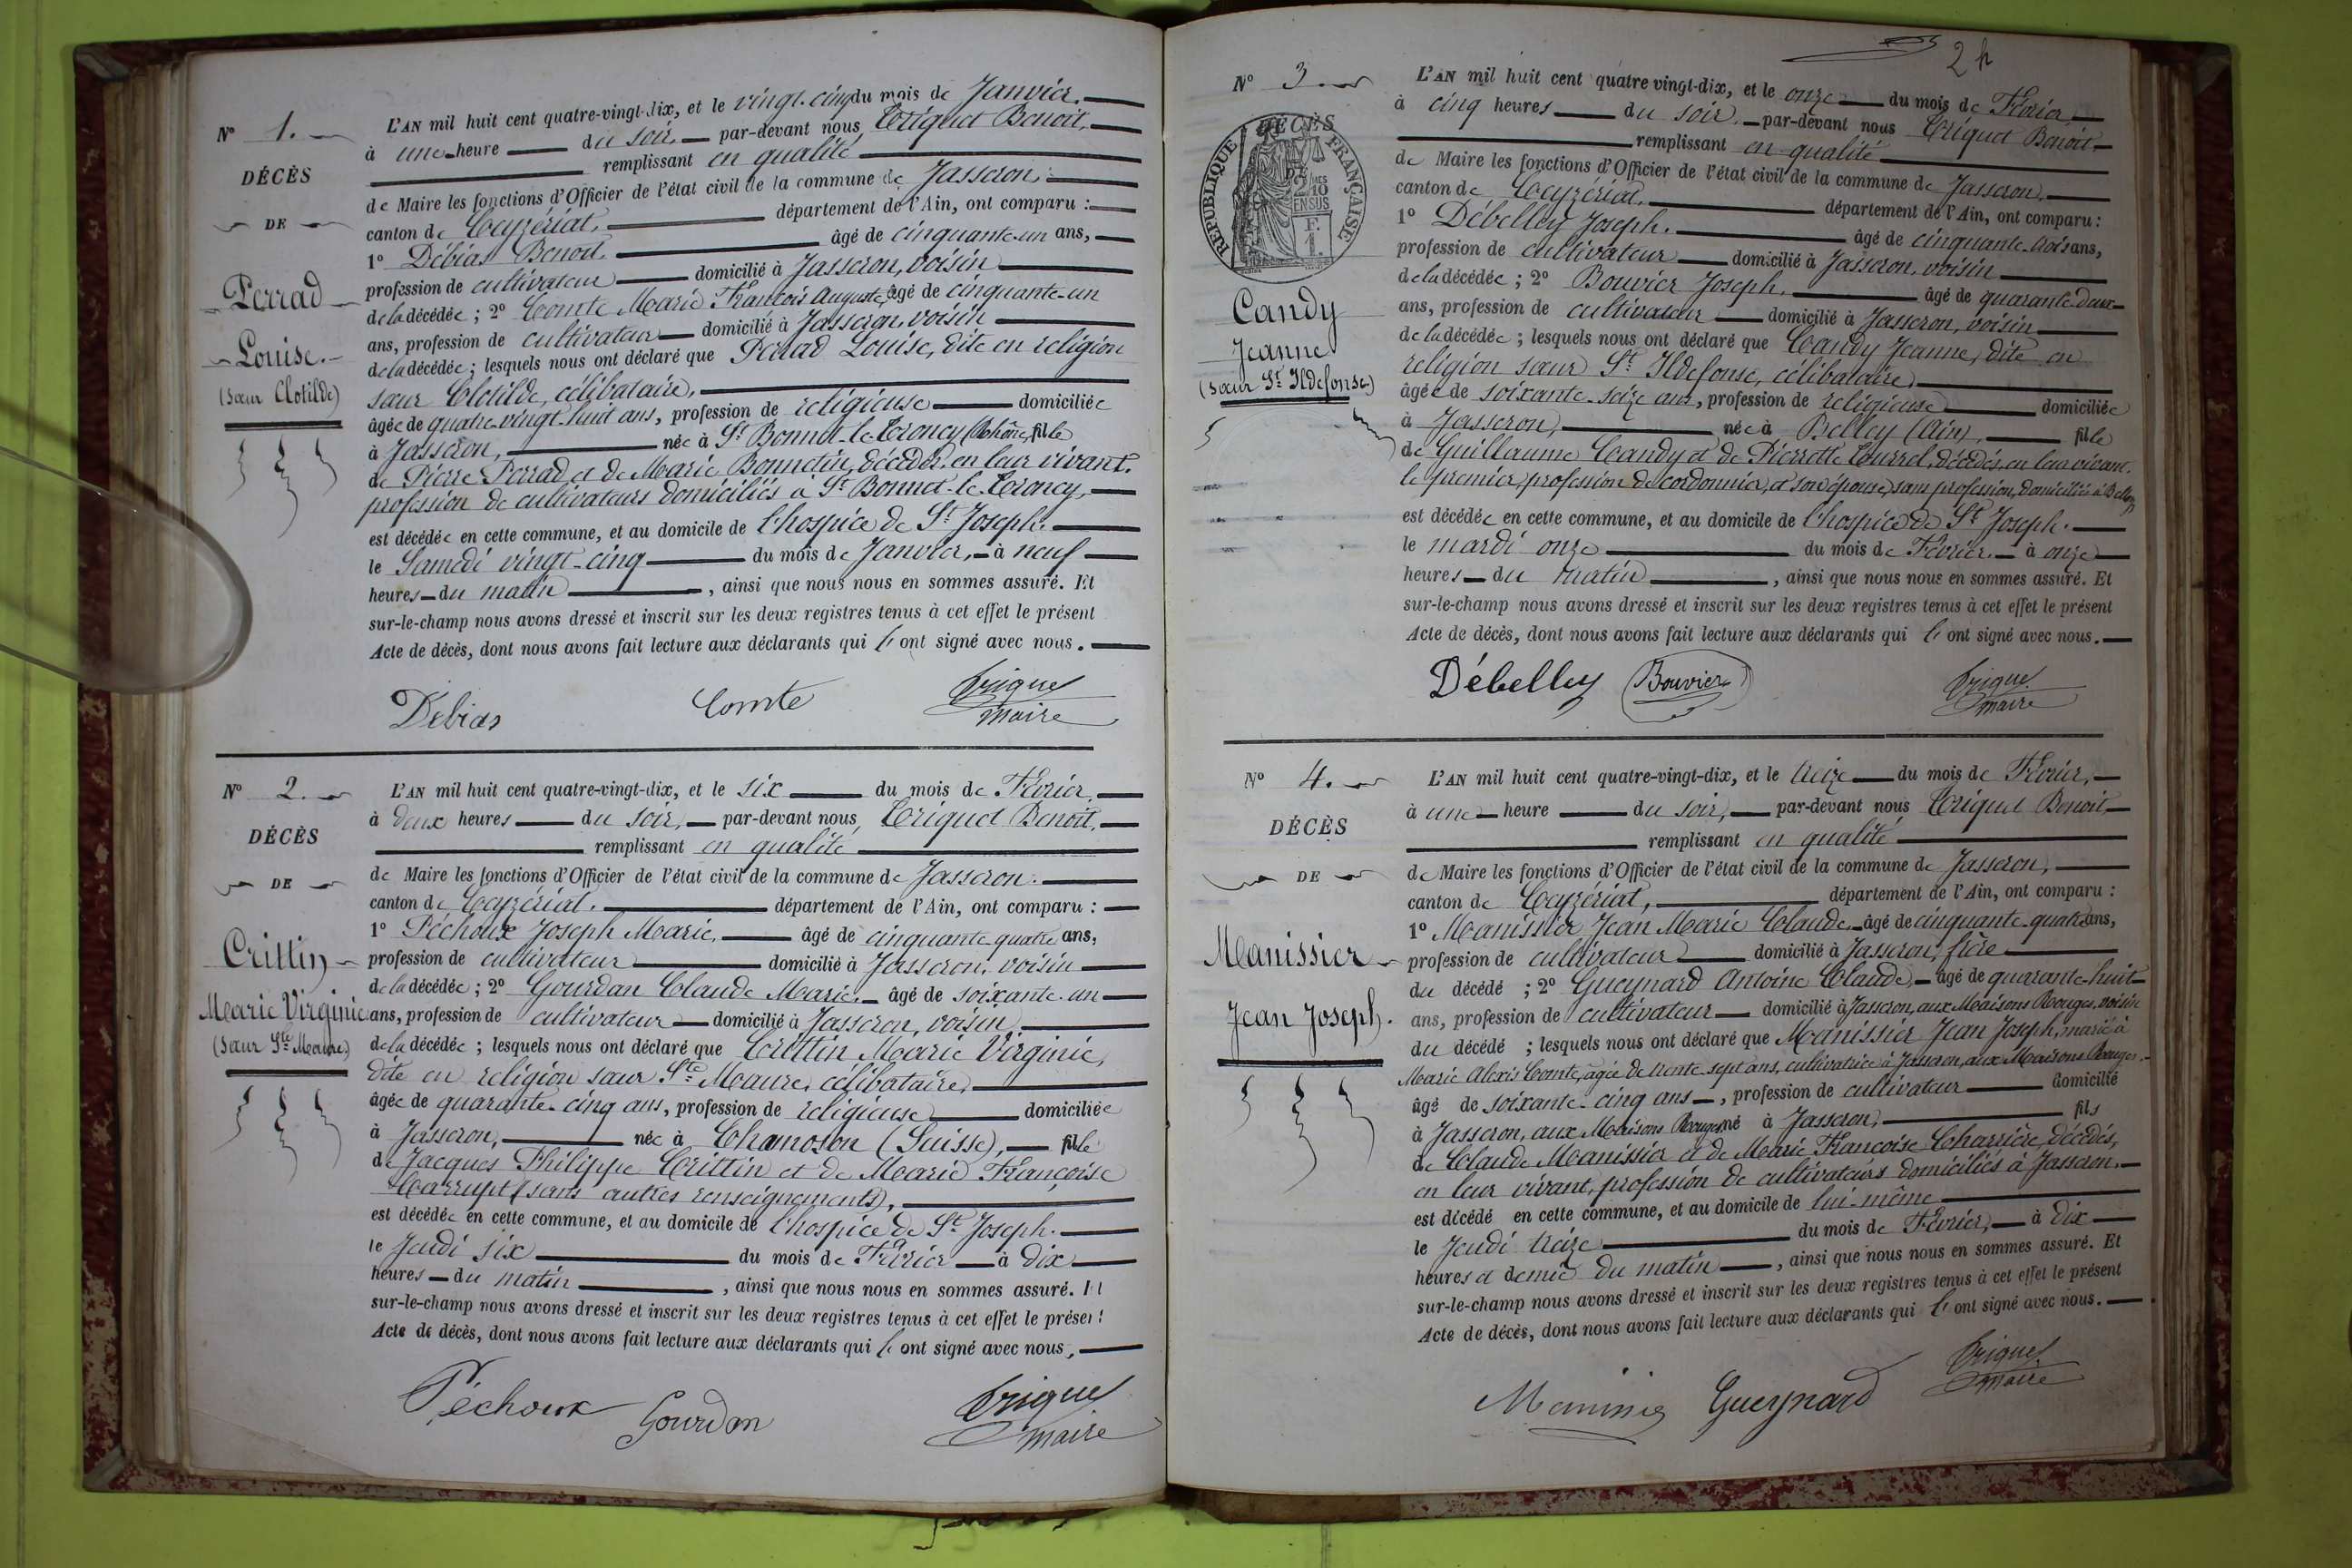 N° 1.
DÉCÈS
DE
Perrad
Louise.
(Sœur Clotilde)
L'AN mil huit cent quatre-vingt-dix, et le vingt-cinq du mois de Janvier.
à une heure du soir, par-devant nous Triquet Benoit,
remplissant en qualité
de Maire les fonctions d'Officier de l'état civil de la commune de Jasseron,
canton de Ceyzériat, département de l'Ain, ont comparu :
1° Débias Benoit. âgé de cinquante-un ans,
profession de cultivateur domicilié à Jasseron, voisin
de la décédée ; 2° Comte Marie François Auguste, âgé de cinquante-un
ans, profession de cultivateur domicilié à Jasseron, voisin
de la décédée ; lesquels nous ont déclaré que Perrad Louise, dite en religion
sœur Clotilde, célibataire,
âgée de quatre-vingt-huit ans, profession de religieuse domiciliée
à Jasseron, née à St Bonnet-le-Troncy (Rhône, fille
de Pierre Perrad et de Marie Bonnetin, décédés, en leur vivant.
profession de cultivateurs domiciliés à St Bonnet-le-Troncy,
est décédée en cette commune, et au domicile de l'hospice de St Joseph.
le Samedi vingt-cinq du mois de Janvier, à neuf
heures du matin, ainsi que nous nous en sommes assuré. Et
sur-le-champ nous avons dressé et inscrit sur les deux registres tenus à cet effet le présent
Acte de décès, dont nous avons fait lecture aux déclarants qui l'ont signé avec nous.
Débias Comte Triquet
maire
N° 2.
DÉCÈS
DE
Crittin
Marie Virginie
(Sœur Ste Maure)
L'AN mil huit cent quatre-vingt-dix, et le six du mois de Février,
à deux heures du soir, par-devant nous Triquet Benoit,
remplissant en qualité
de Maire les fonctions d'Officier de l'état civil de la commune de Jasseron.
canton de Ceyzériat. département de l'Ain, ont comparu :
1° Péchoux Joseph Marie, âgé de cinquante-quatre ans,
profession de cultivateur domicilié à Jasseron, voisin
de la décédée ; 2° Gourdan Claude Marie, âgé de soixante-un
ans, profession de cultivateur domicilié à Jasseron, voisin
de la décédée ; lesquels nous ont déclaré que Crittin Marie Virginie,
dite en religion sœur Ste Maure, célibataire,
âgée de quarante-cinq ans, profession de religieuse domiciliée
à Jasseron, née à Chamoson (Suisse), fille
de Jacques Philippe Crittin et de Marie Françoise
Carrupt (sans autres renseignements),
est décédée en cette commune, et au domicile de l'hospice de St Joseph.
le Jeudi six du mois de Février à dix
heures du matin, ainsi que nous nous en sommes assuré. Et
sur-le-champ nous avons dressé et inscrit sur les deux registres tenus à cet effet le présent
Acte de décès, dont nous avons fait lecture aux déclarants qui l'ont signé avec nous,
Péchoux Gourdan Triquet
maire
2
N° 3.
DÉCÈS
RÉPUBLIQUE FRANÇAISE
2/10
EN SUS
F.
1.
Candy
Jeanne
(Sœur St Ildefonse)
L'AN mil huit cent quatre vingt-dix, et le onze du mois de Février,
à cinq heures du soir, par-devant nous Triquet Benoit
remplissant en qualité
de Maire les fonctions d'Officier de l'état civil de la commune de Jasseron,
canton de Ceyzériat. département de l'Ain, ont comparu :
1° Débelley Joseph. âgé de cinquante-trois ans,
profession de cultivateur domicilié à Jasseron, voisin
de la décédée ; 2° Bouvier Joseph, âgé de quarante-deux
ans, profession de cultivateur domicilié à Jasseron, voisin
de la décédée ; lesquels nous ont déclaré que Candy Jeanne, dite en
religion sœur St Ildefonse, célibataire,
âgée de soixante-seize ans, profession de religieuse domiciliée
à Jasseron, née à Belley (Ain), fille
de Guillaume Candy et de Pierrette Tourrel, décédés, en leur vivant.
le premier, profession de cordonnier, et son épouse, sans profession, domiciliés à Belley
est décédée en cette commune, et au domicile de l'hospice de St Joseph.
le mardi onze du mois de Février, à onze
heures du matin, ainsi que nous nous en sommes assuré. Et
sur-le-champ nous avons dressé et inscrit sur les deux registres tenus à cet effet le présent
Acte de décès, dont nous avons fait lecture aux déclarants qui l'ont signé avec nous.
Débelley Bouvier Triquet
maire
N° 4.
DÉCÈS
DE
Manissier
Jean Joseph.
L'AN mil huit cent quatre-vingt-dix, et le treize du mois de Février,
à une heure du soir, par-devant nous Triquet Benoit
remplissant en qualité
de Maire les fonctions d'Officier de l'état civil de la commune de Jasseron,
canton de Ceyzériat, département de l'Ain, ont comparu :
1° Manissier Jean Marie Claude, âgé de cinquante-quatre ans,
profession de cultivateur domicilié à Jasseron, frère
du décédé ; 2° Gueynard Antoine Claude, âgé de quarante-huit
ans, profession de cultivateur domicilié à Jasseron, aux Maisons Rouges, voisin
du décédé ; lesquels nous ont déclaré que Manissier Jean Joseph, marié à
Marie Alexis Comte, âgée de trente-sept ans, cultivatrice à Jasseron, aux Maisons Rouges.
âgé de soixante-cinq ans, profession de cultivateur domicilié
à Jasseron, aux Maisons Rouges né à Jasseron, fils
de Claude Manissier et de Marie Françoise Charrière, décédés,
en leur vivant, profession de cultivateurs domiciliés à Jasseron.
est décédé en cette commune, et au domicile de lui-même
le Jeudi treize du mois de Février, à dix
heures et demie du matin, ainsi que nous nous en sommes assuré. Et
sur-le-champ nous avons dressé et inscrit sur les deux registres tenus à cet effet le présent
Acte de décès, dont nous avons fait lecture aux déclarants qui l'ont signé avec nous.
Manissier Gueynard Triquet
maire